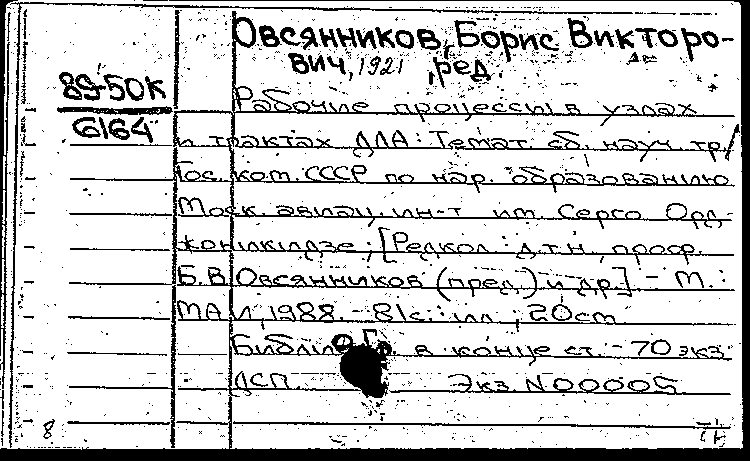 Овсянников, Борис Викторо-
вич, 1921 , ред.
89-50К
6164
Рабочие процессы в узлах
и трактах ДЛА: Темат. сб. науч. тр./
Гос. ком. СССР по нар. образованию
Моск. авиац. ин-т им. Серго Орд-
жоникидзе; [Редкол.: д.т.н., проф.
Б.В. Овсянников (пред.) и др.]. - М.:
МАИ, 1988. - 81с.: ил.; 20см.
Библиогр. в конце ст. - 70 экз.
ДСП. Экз. N00005
8